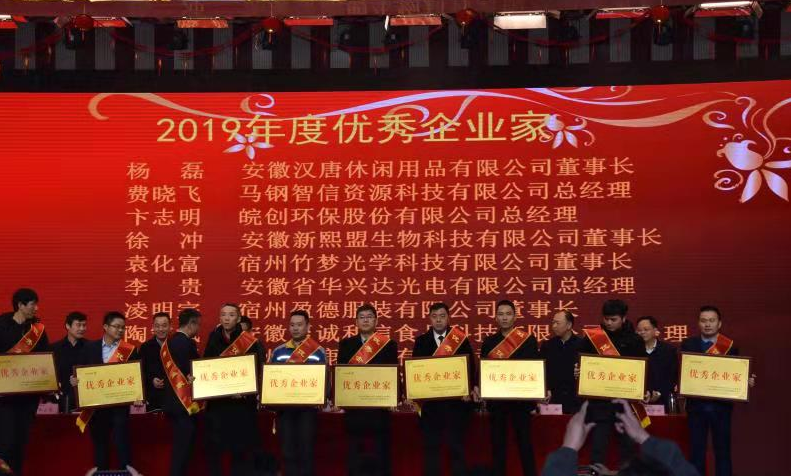 2019年度优秀企业家
杨 磊 安徽汉唐休闲用品有限公司董事长
费晓飞 马钢智信资源科技有限公司总经理
卞志明 皖创环保股份有限公司总经理
徐 冲 安徽新熙盟生物科技有限公司董事长
袁化富 宿州竹梦光学科技有限公司董事长
李 贵 安徽省华兴达光电有限公司总经理
凌明 宿州盈德服装有限公司董事长
陶 安徽 诚和信食品科技有限公司总经理
有
优秀企业家
优秀企业家
优秀企业家
优秀企业家
优秀企业家
优秀企业家
优秀企业家
优秀企业家
优秀企业家